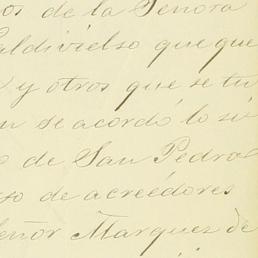 os de la Señora
aldivielso que que
y otros que se tu
n se acordó lo si
o de San Pedro
so de acréedores
eñor Marques de